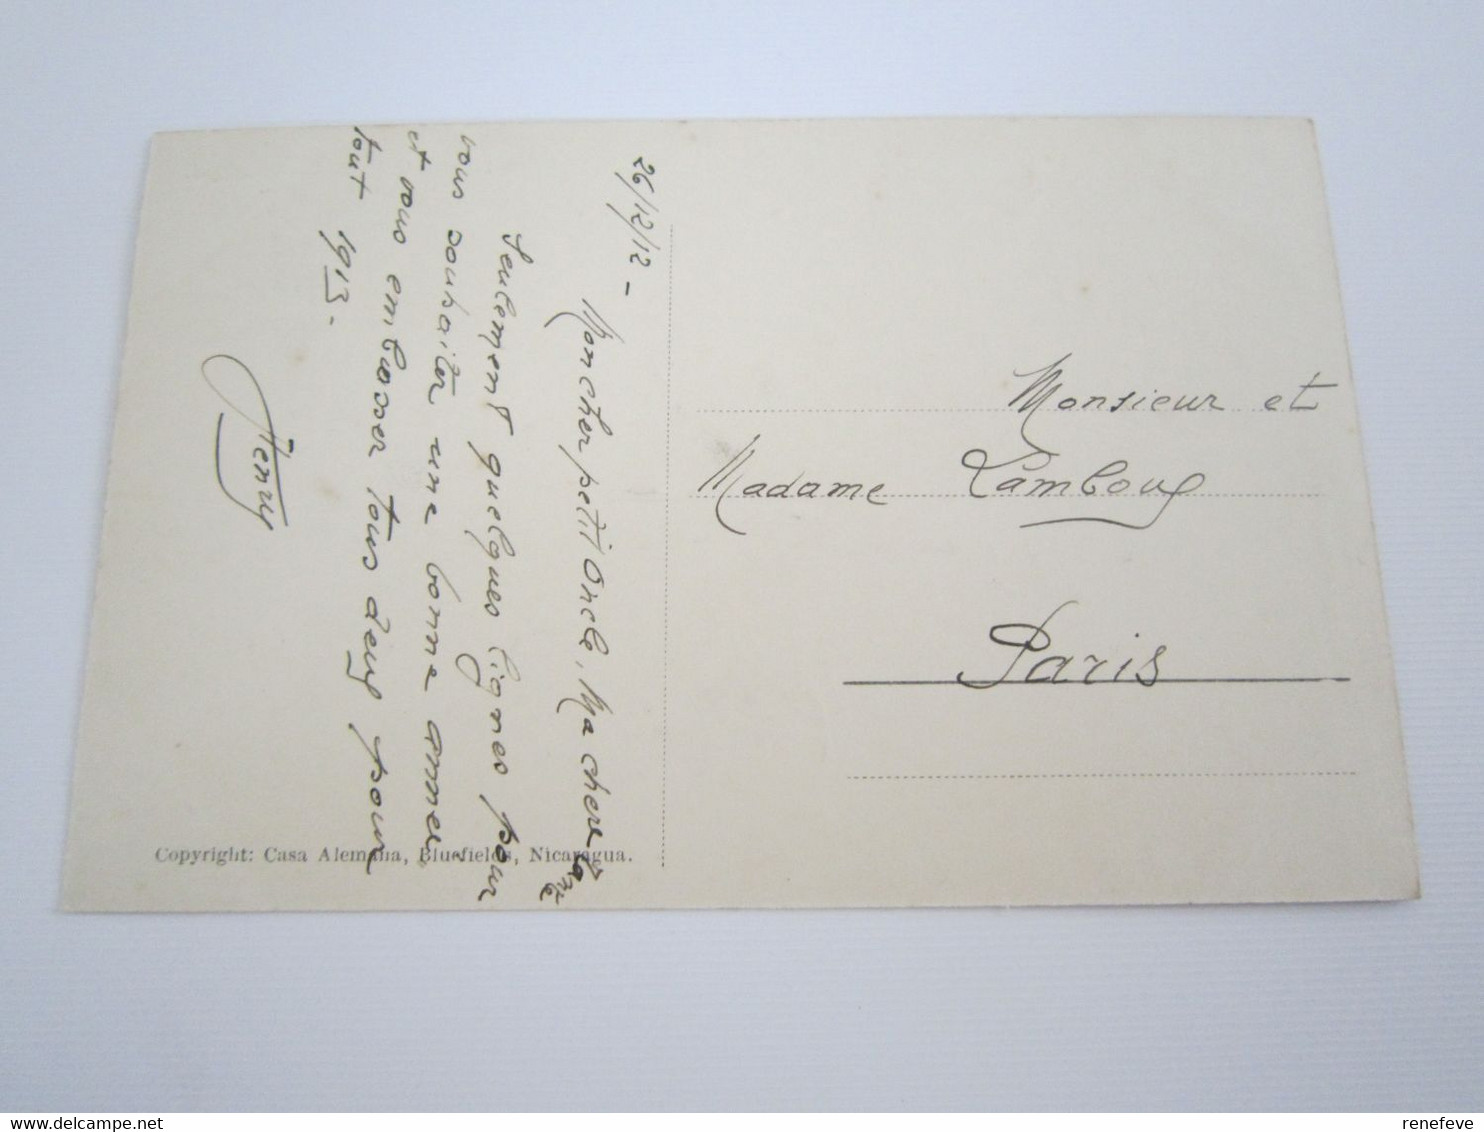 26/12/12 -
Mon cher petit Oncle, Ma chere
Seulement quelques lignes pour
vous souhaiter une bonne année
et vous embrasser tous deux pour
tout 1913.
Henry
Monsieur et
Madame Lamboux
Paris
Copyright: Casa Alemana, Bluefields, Nicaragua.
delcampe.net
renefeve